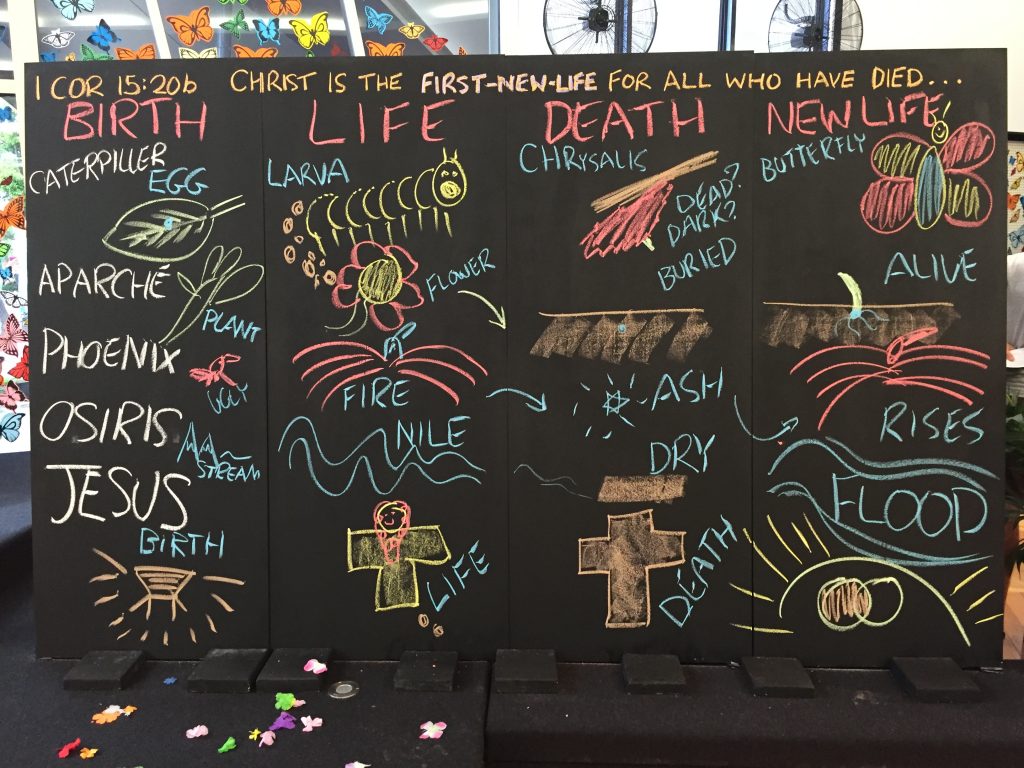 1 COR 15:20b CHRIST IS THE FIRST-NEW-LIFE FOR ALL WHO HAVE DIED...
BIRTH LIFE DEATH NEW LIFE
CATERPILLER EGG LARVA CHRYSALIS DEAD? DARK? BUTTERFLY
APARCHÉ PLANT FLOWER BURIED ALIVE
PHOENIX UGLY FIRE ASH RISES
OSIRIS STREAM NILE DRY FLOOD
JESUS BIRTH LIFE DEATH